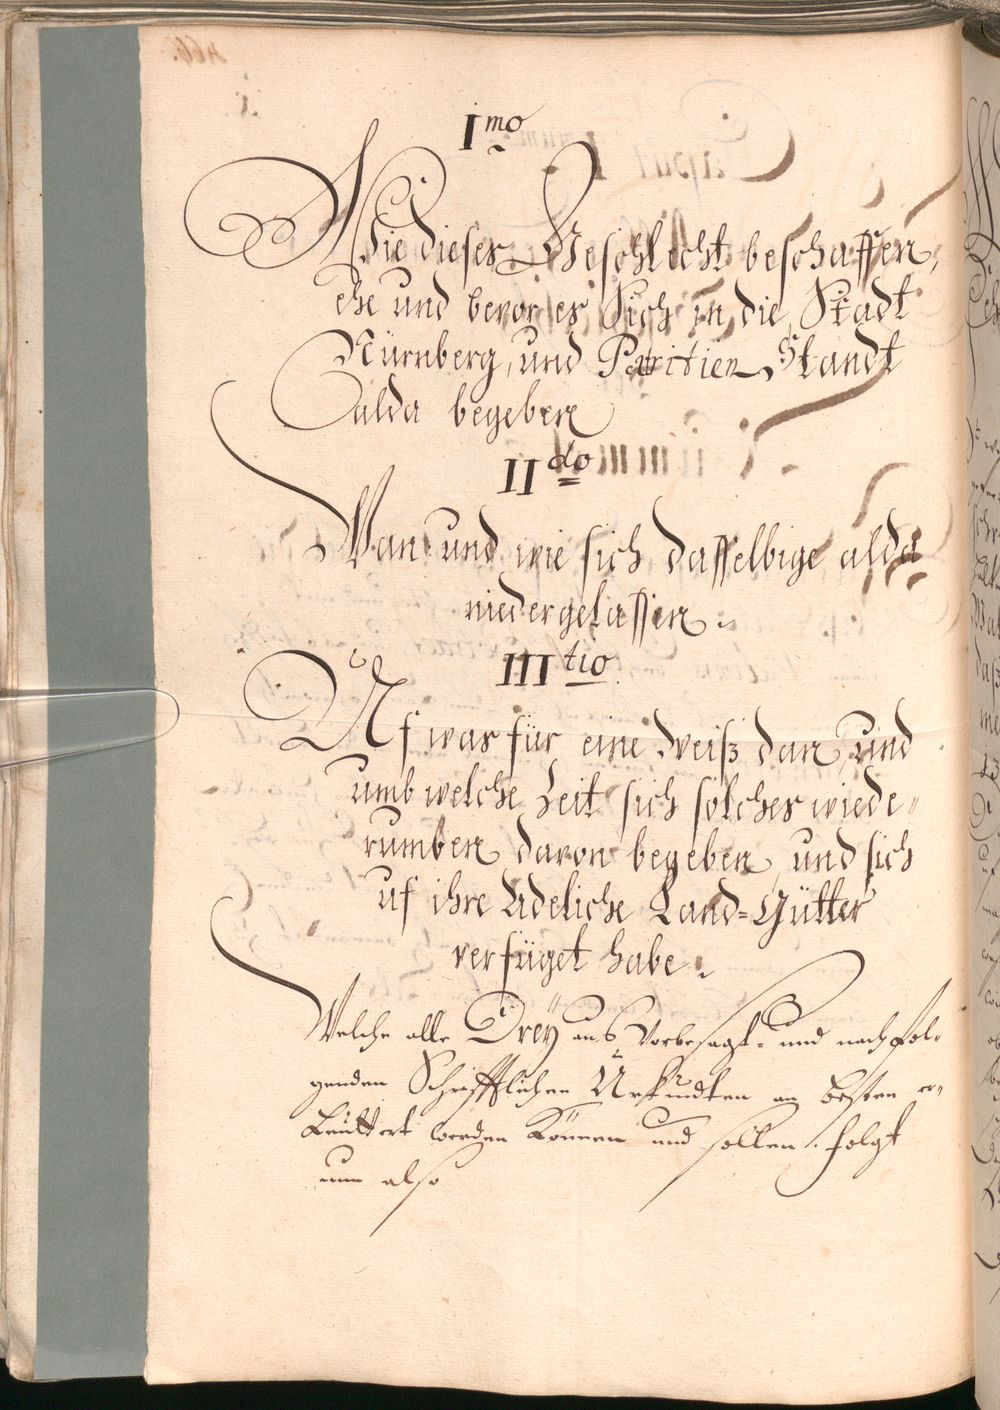 I mo
Wie dieses Geschlecht beschaffen,
ehe und bevor es Sich in die Stadt
Nürnberg, und Patritien Standt
alda begeben
II do
Wan und wie sich dasselbige alda
niedergelassen.
III tio
Uf was für eine Weiß dan und
umb welche Zeit sich solches wiede-
rumben davon begeben, und sich
uf ihre Adeliche Land-Gütter
verfüget habe.
Welche alle Dreÿ aus Vorbesagt- und nachfol-
genden Schrifftlichen Urkundten am besten er-
Leüttert werden Können und sollen. folgt
nun also